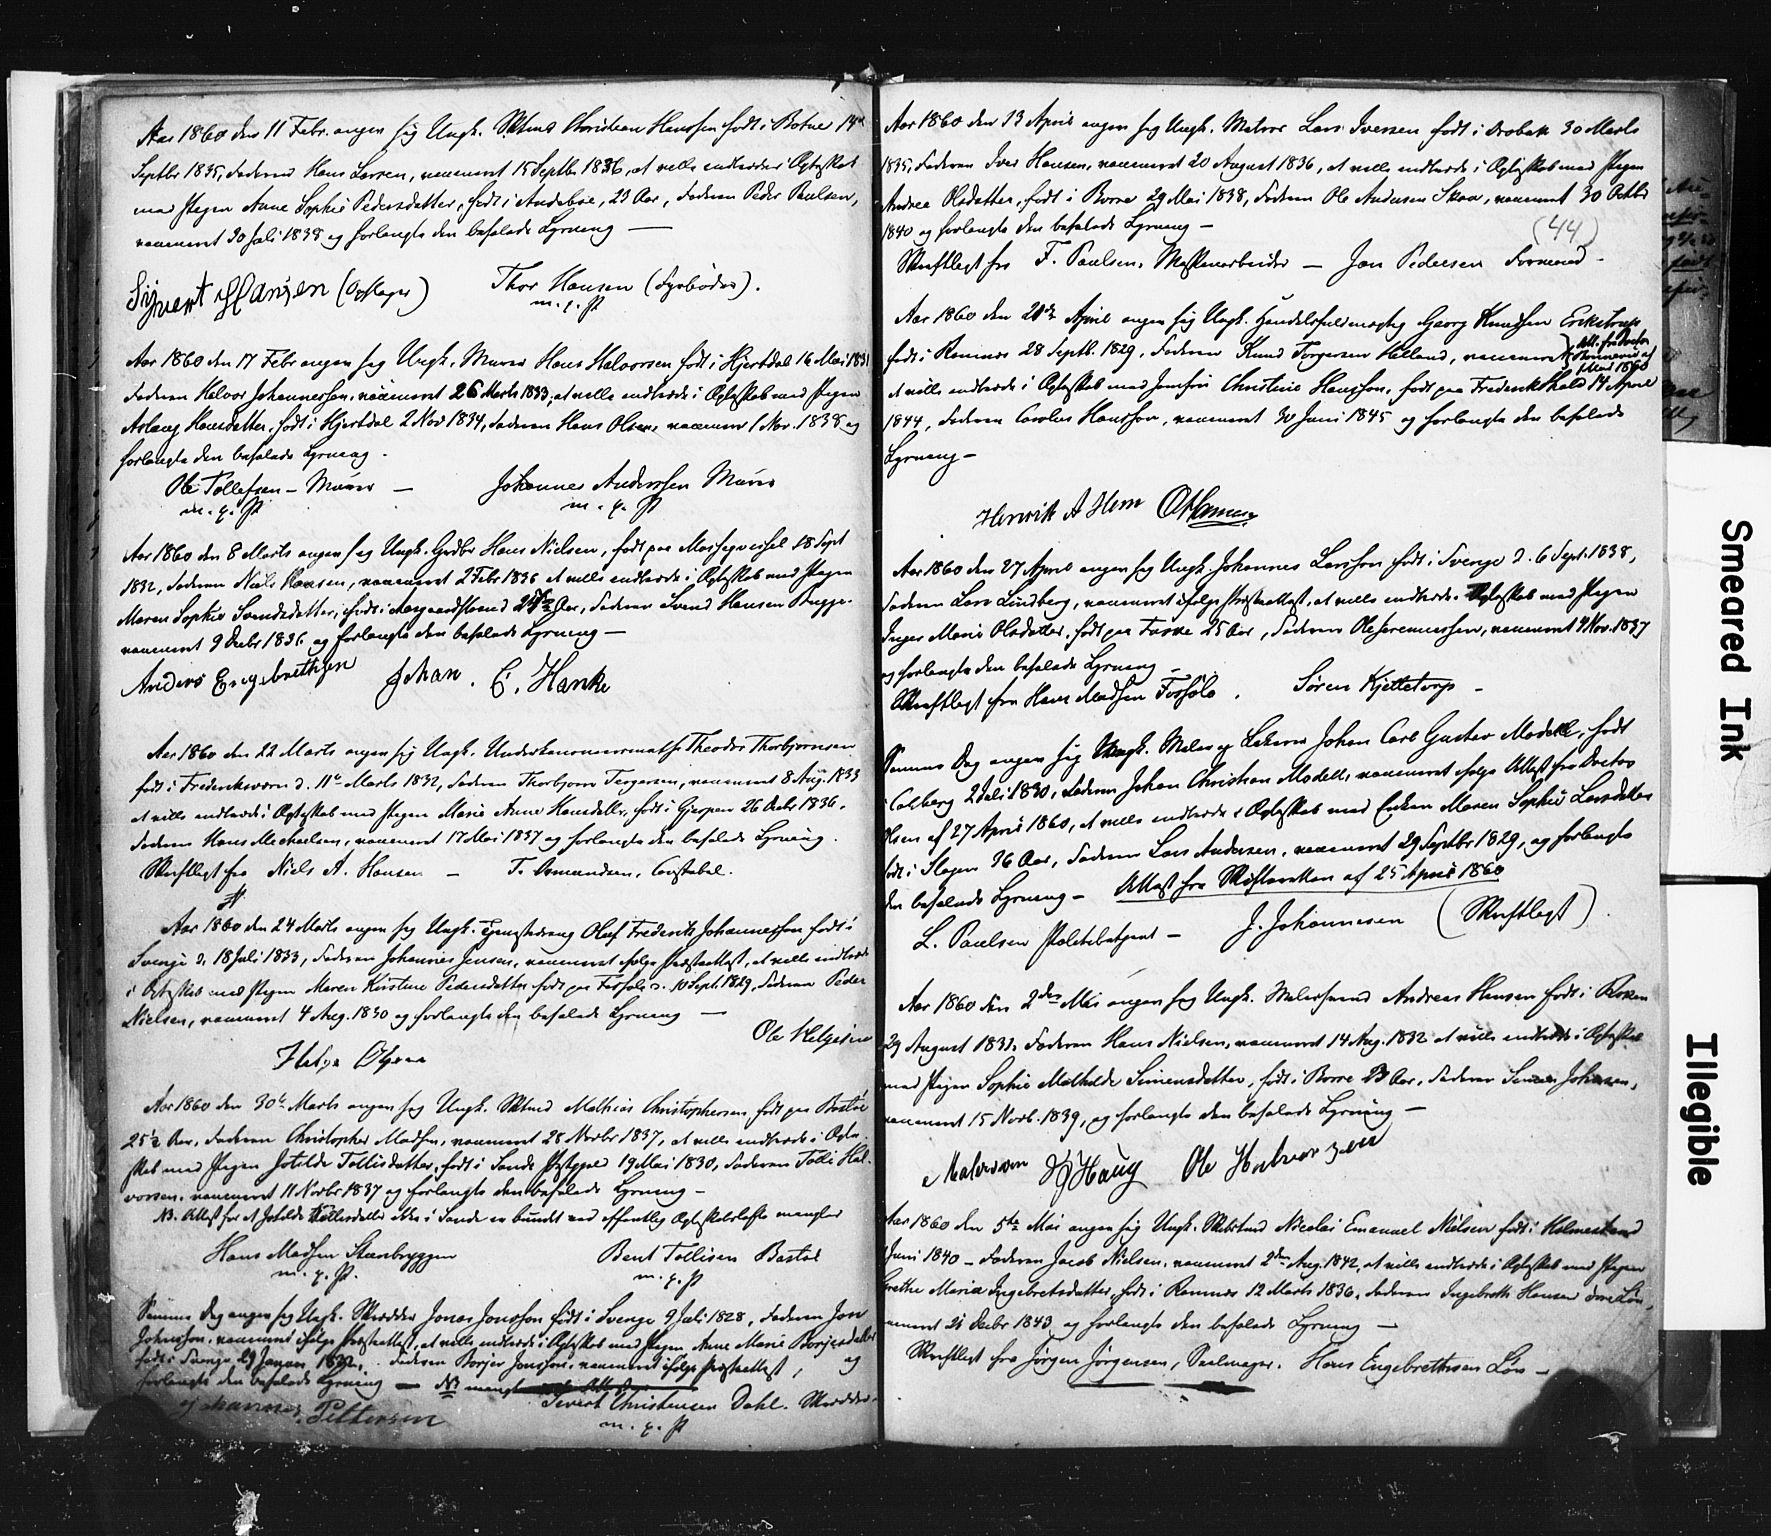 Aar 1860 den 11 Febr. angav sig Ungk. Christian Hanssen født i Botne 14de
Septbr 1835, Faderen Hans Larsen, vaccineret 15 Septbr 1836, at ville indtræde i Ægteskab
med Pigen Anne Sophie Pedersdatter, født i Andebøe, 23 Aar, Faderen Peder Paulsen,
vaccineret 30 Juli 1838 og forlangte den befalede Lysning —
Sijvert Hansen Thor Hansen
m. p. P
Aar 1860 den 17 Febr angav sig Ungk. Murer Hans Halvorsen født i Hjertdal 16 Mai 1831
Faderen Halvor Johannessen, vaccineret 26 Marts 1833, at ville indtræde i Ægteskab med Pigen
Aslaug Hansdatter, født i Hjertdal 2 Nov 1834, Faderen Hans Olsen, vaccineret 1 Nov. 1838 og
forlangte den befalede Lysning -
Ole Tollefsen - Murer — Johannes Anderssen Murer
m. p. P m. p. P
Aar 1860 den 8 Marts angav sig Ungk. Hans Nielsen, født paa 18 Sept
1832, Faderen Niels Hansen, vaccineret 2 Febr 1836 at ville indtræde i Ægteskab med Pigen
Maren Sophie Svendsdatter, født i Aar, Faderen Svend Hansen Bugge.
vaccineret 9 Decbr 1836 og forlangte den befalede Lysning —
Anders Engebrethsen Johan. C. Hanke
Aar 1860 den 22 Marts angav sig Ungk. Theodor Thorbjørnsen
født i Frederiksværn d. 11te Marts 1832, Faderen Thorbjørn Torgersen, vaccineret 8 Aug. 1833
at ville indtræde i Ægteskab med Pigen Marie Anne Hansdatter, født i Gjerpen 26 Decbr 1836.
Faderen Hans Michaelsen, vaccineret 17 Mai 1837 og forlangte den befalede Lysning.
Skriftligt fra Niels A. Hansen — T. Asmundsen, Constabel.
Aar 1860 den 24 Marts angav sig Ungk. Tjenestedreng Oluf Frederik Johannessen født i
Sverige d. 18 Juli 1833, Faderen Johannes Jensen, vaccineret ifølge Præsteattest, at ville indtræde
i Ægteskab med Pigen Maren Kirstine Pedersdatter født paa d. 10 Sept. 1829, Faderen Peder
Nielsen, vaccineret 4 Aug. 1830 og forlangte den befalede Lysning —
Helge Olsen Ole Helgesen
Aar 1860 den 30te Marts angav sig Ungk. Mathias Christophersen, født paa Bastøe
25½ Aar, Faderen Christopher Madsen, vaccineret 28 Novbr 1837, at ville indtræde i Ægte-
skab med Pigen Jotilde Tollisdatter, født i Sande 19 Mai 1830, Faderen Tolli Hal-
vorsen, vaccineret 11 Novbr 1837 og forlangte den befalede Lysning —
NB. Attest for at Jotilde Tollisdatter ikke i Sande er bundet ved offentlig Ægteskabsløfte mangler
Hans Madsen Steenbryggen Bent Tollisen Bastøe
m. p. P. m. p. P
Samme Dag angav sig Ungk. Skrædder Jonas Jonsson født i Sverige 9 Juli 1828, Faderen Jon
Johnsson, vaccineret ifølge Præsteattest, at ville indtræde i Ægteskab med Pigen Anne Marie Borgesdatter
født i Sverige 29 Januar Faderen Borger Jonsson, vaccineret ifølge Præsteattest, og
forlangte den befalede Lysning — NB
Johannes Pettersen Sivert Christensen Dahl. Skrædder.
m. p. P
Aar 1860 den 13 April angav sig Ungk. Matros Lars Iversen født i Drøbak 30 Marts
1835, Faderen Iver Hansen, vaccineret 20 August 1836, at ville indtræde i Ægteskab med Pigen
Andrea Olsdatter, født i Borre 29 Mai 1838, Faderen Ole Andersen Skaa, vaccineret 30 Octbr
1840 og forlangte den befalede Lysning —
(44)
Skriftligt fra F. Paulsen, Maskinarbeider — Jan Pedersen Formand -
Aar 1860 den April angav sig Ungk. Handelsfuldmægtig Georg Knudsen Erikstrup
født i Ramnes 28 Septb. 1829, Faderen Knud Torgersen Helland, vaccineret
1 Mai 1860
at ville indtræde i Ægteskab med Jomfru Christine Hansson, født paa Frederikshald 14 April
1844, Faderen Carolus Hansson, vaccineret 30 Juni 1845 og forlangte den befalede
Lysning —
Henrik A Hem
Aar 1860 den 27 April angav sig Ungk. Johannes Larsson født i Sverige d. 6 Sept. 1838,
Faderen Lars Lindberg, vaccineret ifølge Præsteattest, at ville indtræde i Ægteskab med Pigen
Inger Marie Olsdatter, født paa 25 Aar, Faderen Ole vaccineret 4 Nov. 1837
og forlangte den befalede Lysning —
Skriftligt fra Hans Madsen Søren Kjelletorp -
Samme Dag angav sig Ungk. Maler og Lakerer Johan Carl Gustav Modell, født
i Colberg 2 Juli 1830, Faderen Johan Christian Modell, vaccineret ifølge Attest fra Doctor
Olsen af 27 April 1860, at ville indtræde i Ægteskab med Enken Maren Sophie Larsdatter
født i Slagen 36 Aar, Faderen Lars Andersen, vaccineret 29 Septbr 1829, og forlangte
den befalede Lysning — Attest fra Skifteretten af 25 April 1860
L. Paulsen Politibetjent — J. Johannesen (Skriftligt)
Aar 1860 den 2den Mai angav sig Ungk. Malersvend Andreas Hansen født i
29 August 1831, Faderen Hans Nielsen, vaccineret 14 Aug. 1832 at ville indtræde i Ægteskab
med Pigen Sophie Mathilde Simensdatter, født i Borre 23 Aar, Faderen Simen Johansen,
vaccineret 15 Novb. 1839, og forlangte den befalede Lysning —
Haug Ole Halvorsen
Aar 1860 den 5te Mai angav sig Ungk. Nicolai Emanuel Nielsen født i Holmestrand
Juni 1840 — Faderen Jacob Nielsen, vaccineret 2den Aug. 1842, at ville indtræde i Ægteskab med Pigen
Grethe Maria Ingebretsdatter, født i Ramnes 12 Marts 1836, Faderen Ingebreth Hansen
vaccineret 21 Decbr 1843 og forlangte den befalede Lysning —
Skriftligt fra Jørgen Jørgensen, Seilmager. Hans Engebrethsen Løv —
Smeared Ink
Illegible